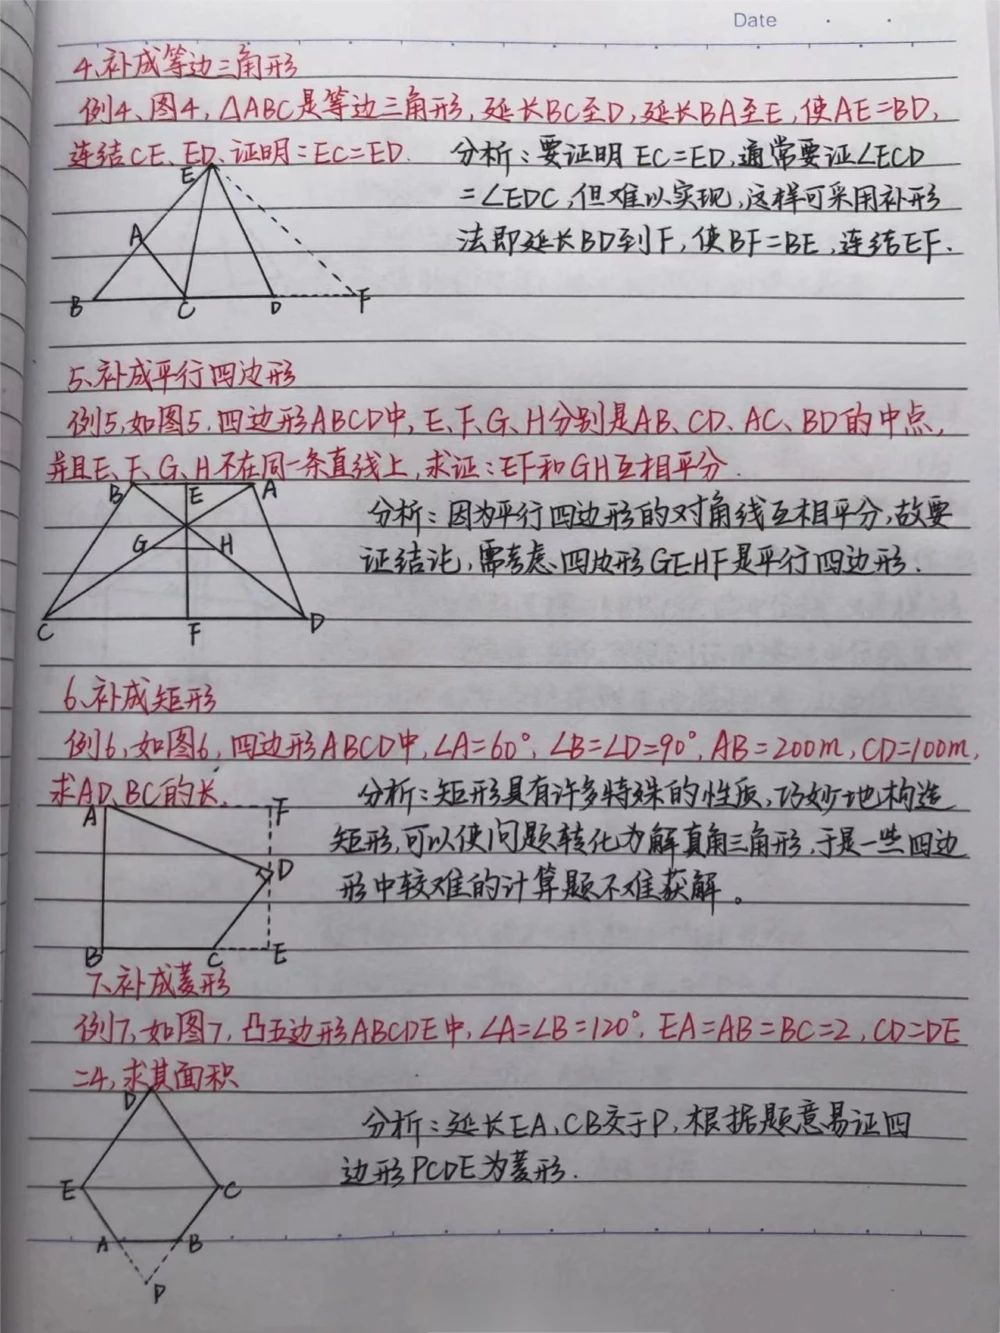 Date
4、补成等边三角形
例4、图4,△ABC是等边三角形,延长BC至D,延长BA至E,使AE=BD,
连结CE、ED.证明:EC=ED.
分析:要证明EC=ED,通常要证∠ECD
=∠EDC,但难以实现,这样可采用补形
法即延长BD到F,使BF=BE,连结EF.
E
A
B
C
D
F
5、补成平行四边形
例5,如图5,四边形ABCD中,E、F、G、H分别是AB、CD、AC、BD的中点,
并且E、F、G、H不在同一条直线上,求证:EF和GH互相平分.
分析:因为平行四边形的对角线互相平分,故要
证结论,需考虑四边形GEHF是平行四边形.
B
E
A
G
H
C
F
D
6、补成矩形
例6,如图6,四边形ABCD中,∠A=60°,∠B=∠D=90°,AB=200m,CD=100m,
求AD、BC的长.
分析:矩形具有许多特殊的性质,巧妙地构造
矩形,可以使问题转化为解直角三角形,于是一些四边
形中较难的计算题不难获解。
A
F
D
B
C
E
7、补成菱形
例7,如图7,凸五边形ABCDE中,∠A=∠B=120°,EA=AB=BC=2,CD=DE
=4,求其面积
分析:延长EA、CB交于P,根据题意易证四
边形PCDE为菱形.
D
E
C
A
B
P